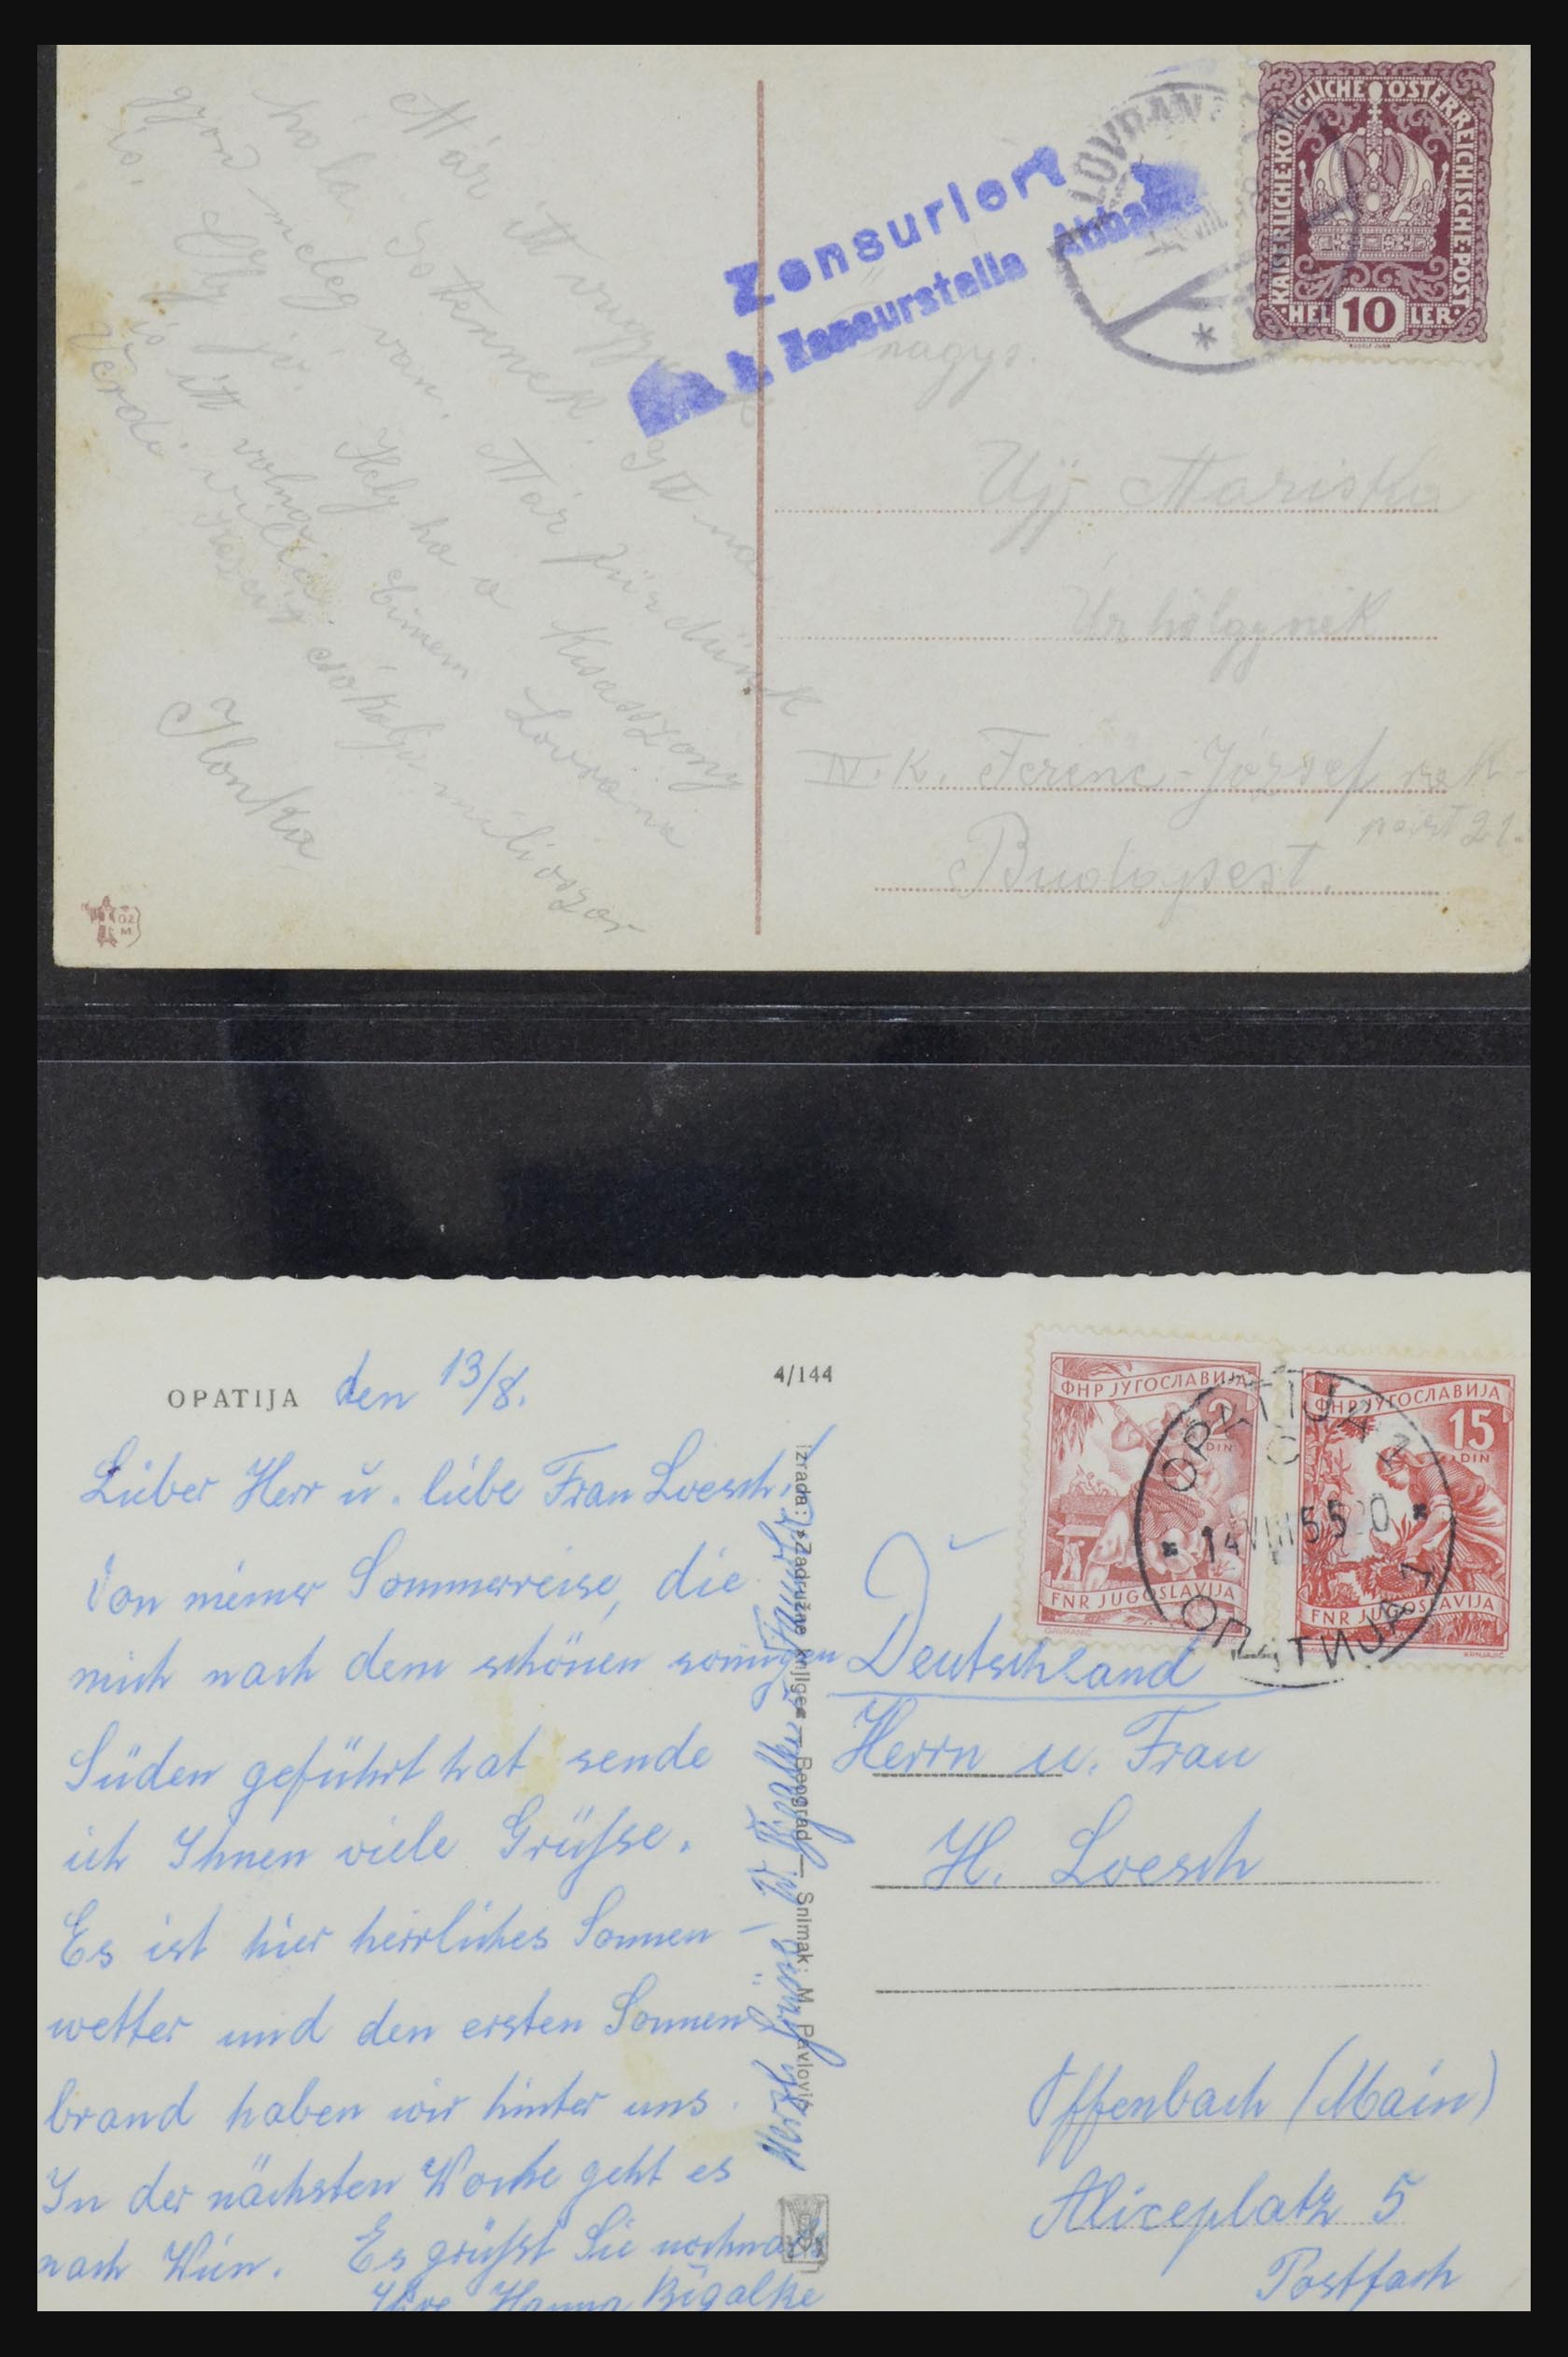 Már itt vagyunk
hála Istennek. Itt na
gyon meleg van. Már fürdünk
is. Oly jó. Kely ha a Kisasszony
is itt volna. Címem Lovrana
Verdi villa.
Kezeit csókolja milioszor
Ilonka
Zensuriert
k. k. Zensurstelle Abbazia
LOVRANA
KAISERLICHE·KÖNIGLICHE ÖSTERREICHISCHE·POST
HEL 10 LER
nagys.
Ujj Mariska
Úrhölgynek
IV. K. Ferenc-József rak-
part 21.
Budapest.
OPATIJA den 13/8.
4/144
Lieber Herr u. liebe Frau Loesch!
Von meiner Sommerreise, die
mich nach dem schönen sonnigen
Süden geführt hat sende
ich Ihnen viele Grüsse.
Es ist hier herrliches Sonnen-
wetter und den ersten Sonnen
brand haben wir hinter uns.
In der nächsten Woche geht es
nach Wien. Es grüsst Sie nochmals
Ihre Hanna Bigalke
Herzl. Grüsse W. Bigalke u. Familie
Izrada: »Zadružne knjige« — Beograd — Snimak: M. Pavlović
ФНР ЈУГОСЛАВИЈА
2 DIN
FNR JUGOSLAVIJA
ФНР ЈУГОСЛАВИЈА
15 DIN
FNR JUGOSLAVIJA
OPATIJA 1
14 VIII 55 20
ОПАТИЈА 1
Deutschland
Herrn u. Frau
H. Loesch
Offenbach (Main)
Aliceplatz 5
Postfach